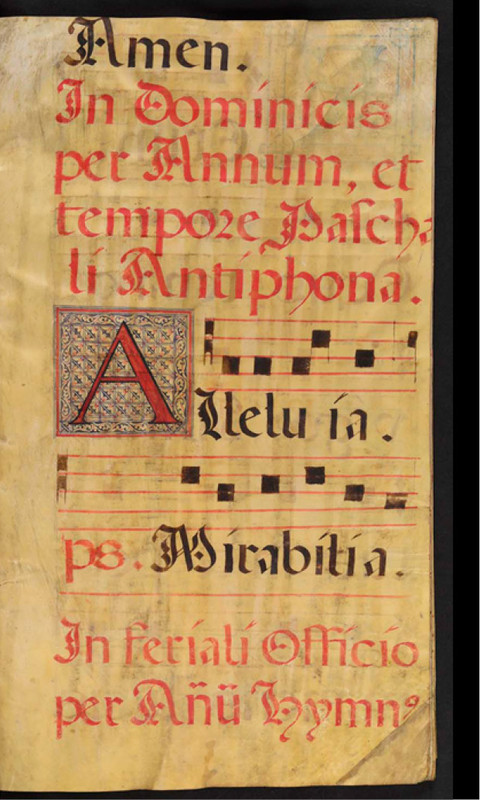 Amen.
In Dominicis
per Annum, et
tempore Pascha
li Antiphona.
Allelu ia.
ps. Mirabilia.
In feriali Officio
per Añũ Hymnꝰ